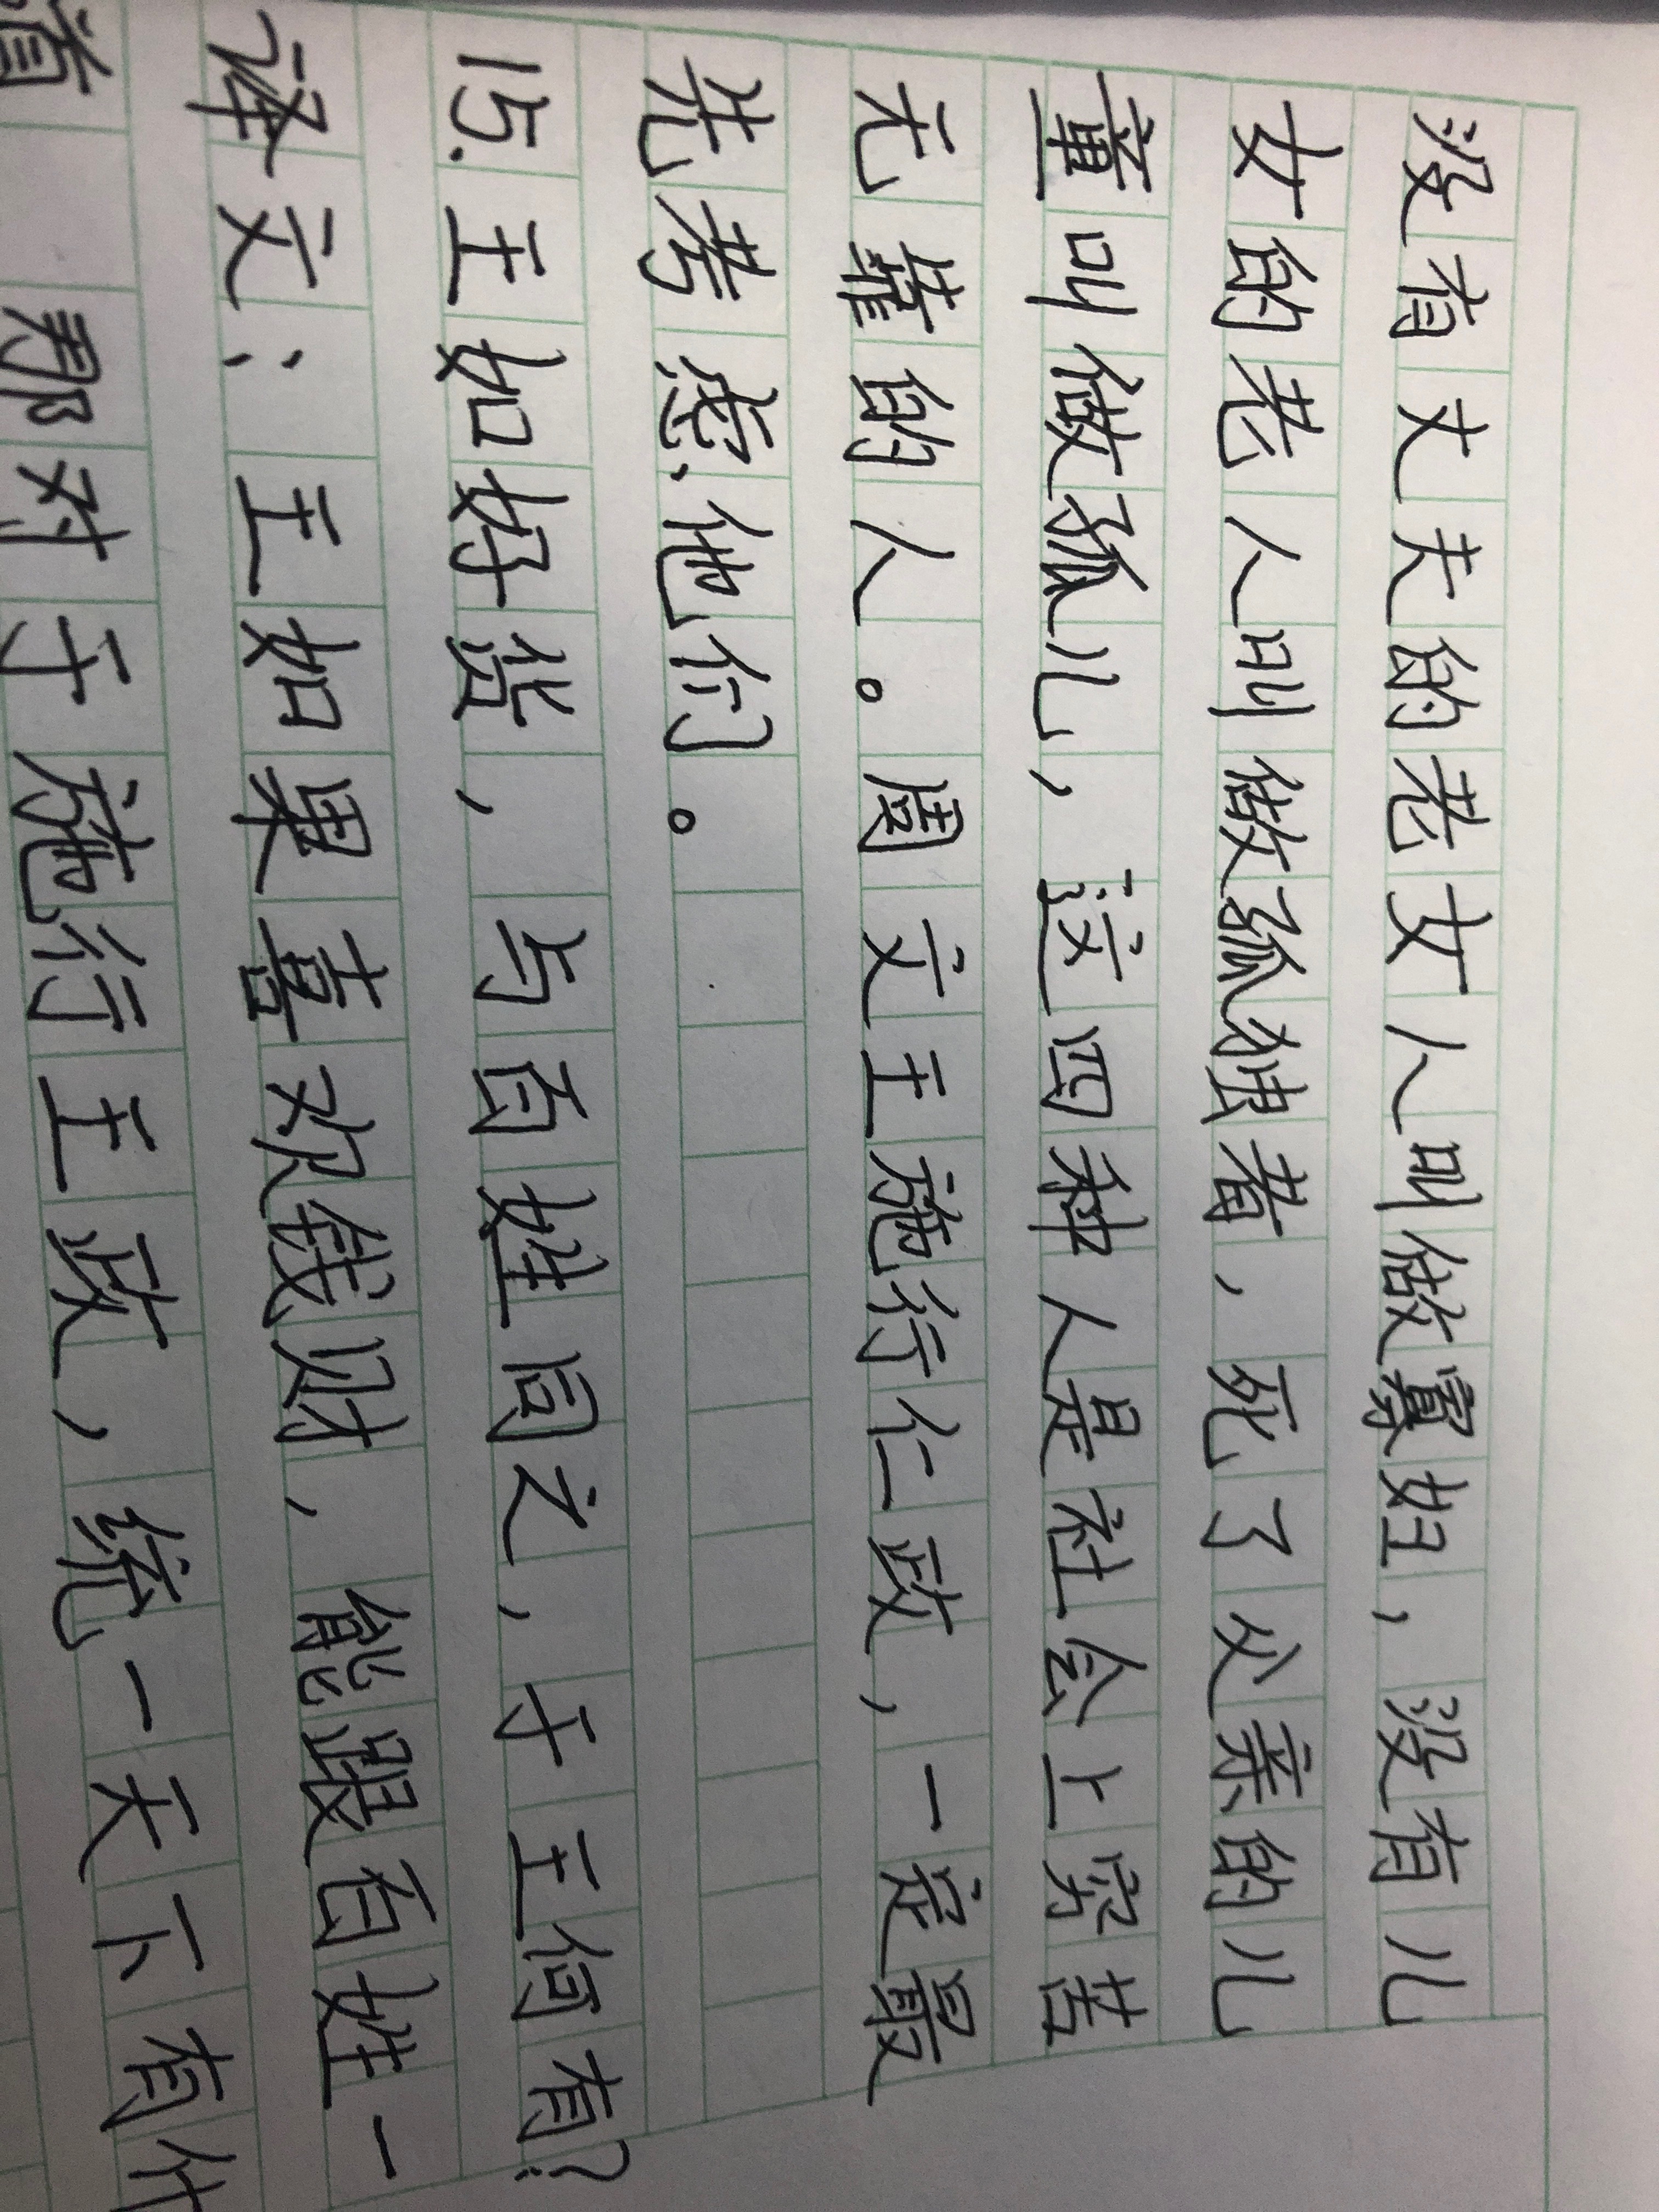 没有丈夫的老女人叫做寡妇，没有儿
女的老人叫做孤独者，死了父亲的儿
童叫做孤儿，这四种人是社会上穷苦
无靠的人。周文王施行仁政，一定最
先考虑他们。
15.王如好货，与百姓同之，于王何有？
译文：王如果喜欢钱财，能跟百姓一
道 那对于施行王政，统一天下有什